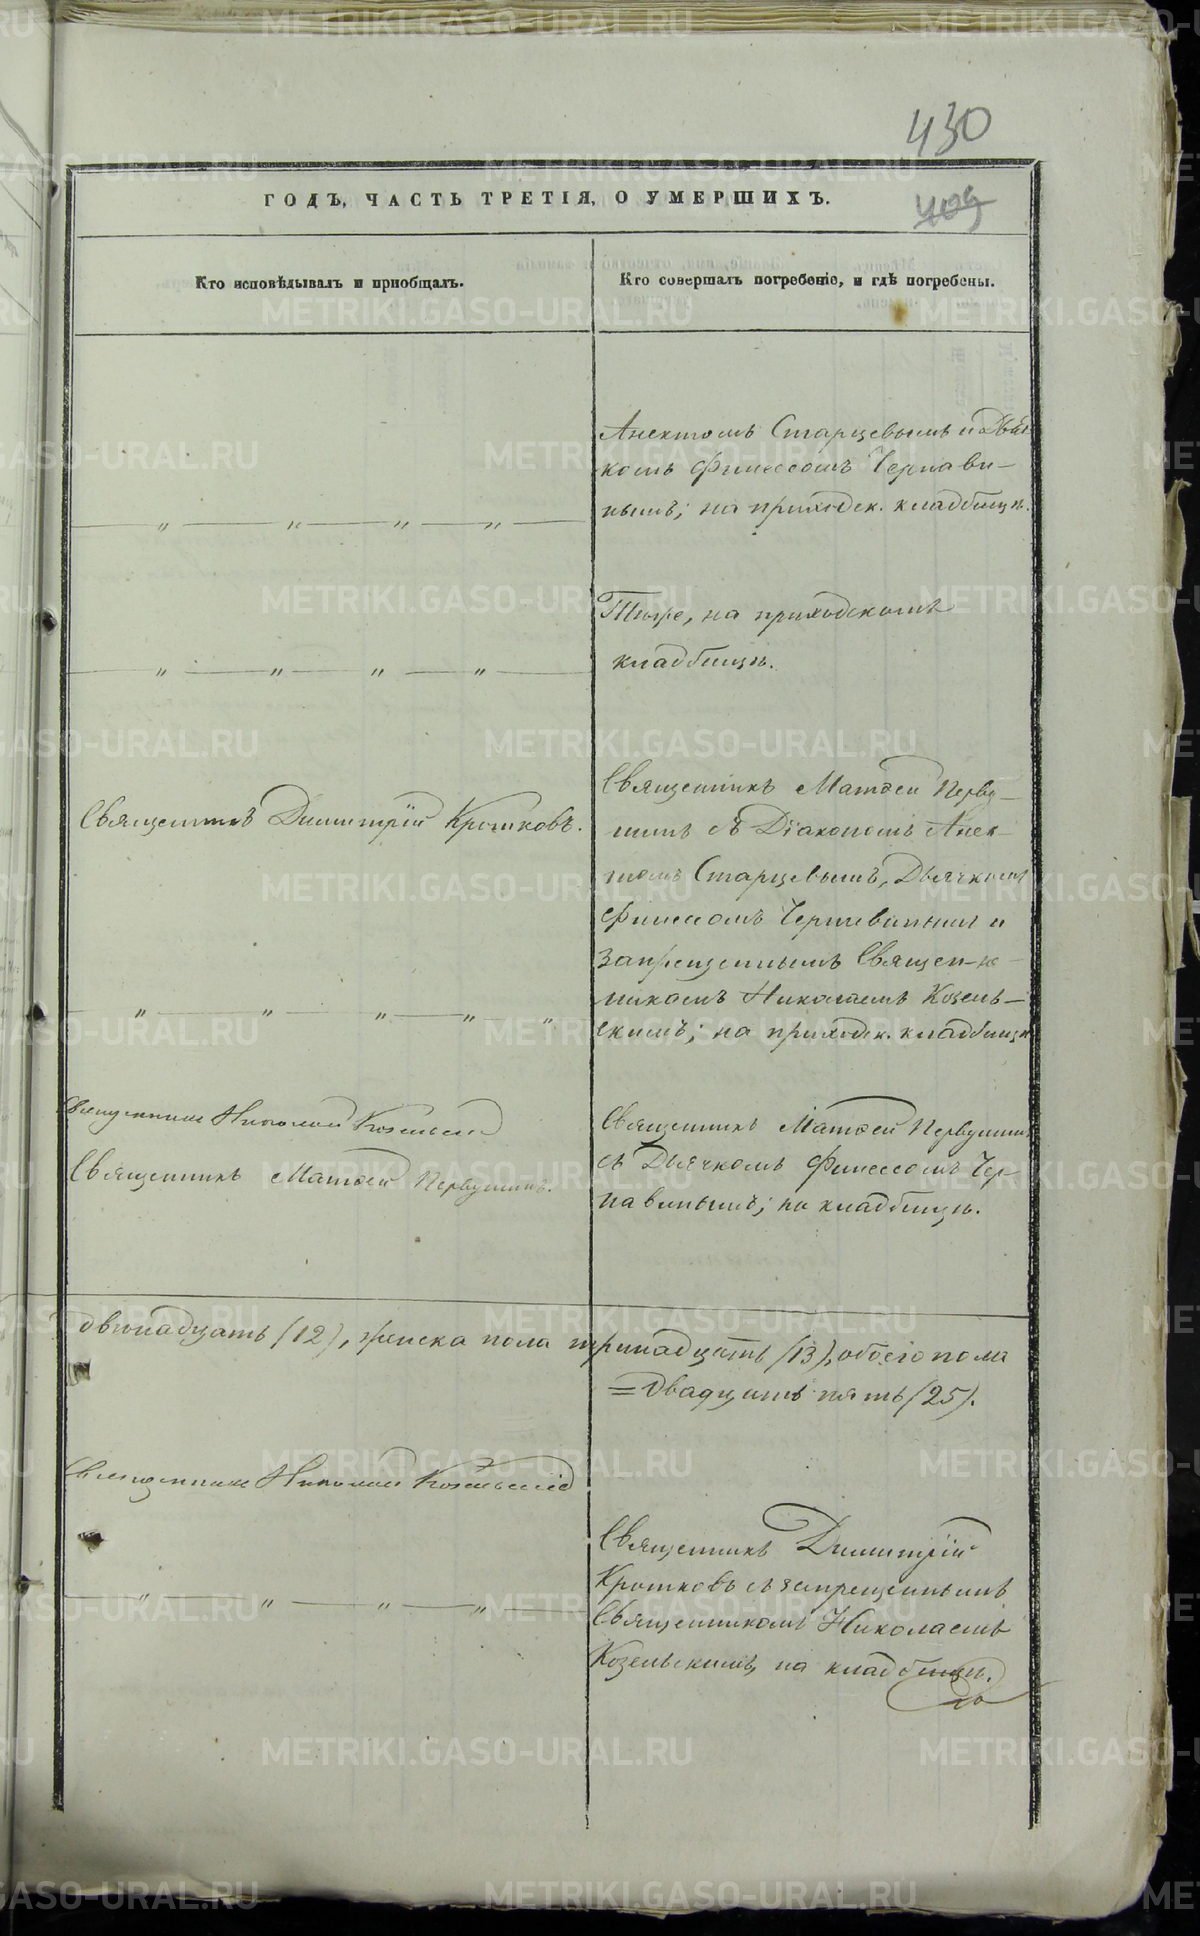 430
ГОДЪ, ЧАСТЬ ТРЕТІЯ, О УМЕРШИХЪ.
409
Кто исповѣдывалъ и пріобщалъ.
Кто совершалъ погребеніе, и гдѣ погребены.
Анектомъ Старцевымъ и Дьяч-
комъ Финеесомъ Чернави-
нымъ; на приходск. кладбищѣ.
Тѣже, на приходскомъ
кладбищѣ.
Священникъ Димитрій Кротковъ.
Священникъ Матѳей Перву-
шинъ съ Діакономъ Анек-
томъ Старцевымъ, Дьячкомъ
Финеесомъ Чернавинымъ и
запрещеннымъ Священ-
никомъ Николаемъ Козель-
скимъ; на приходск. кладбищѣ
Священникъ Николай Козельскій
Священникъ Матѳей Первушинъ.
Священникъ Матѳей Первушинъ
съ Дьячкомъ Финеесомъ Чер-
навинымъ; на кладбищѣ.
двѣнадцать (12), женска пола тринадцать (13), обоего пола
= двадцать пять (25).
Священникъ Николай Козельскій
Священникъ Димитрій
Кротковъ съ запрещеннымъ
Священникомъ Николаемъ
Козельскимъ, на кладбищѣ.
METRIKI.GASO-URAL.RU